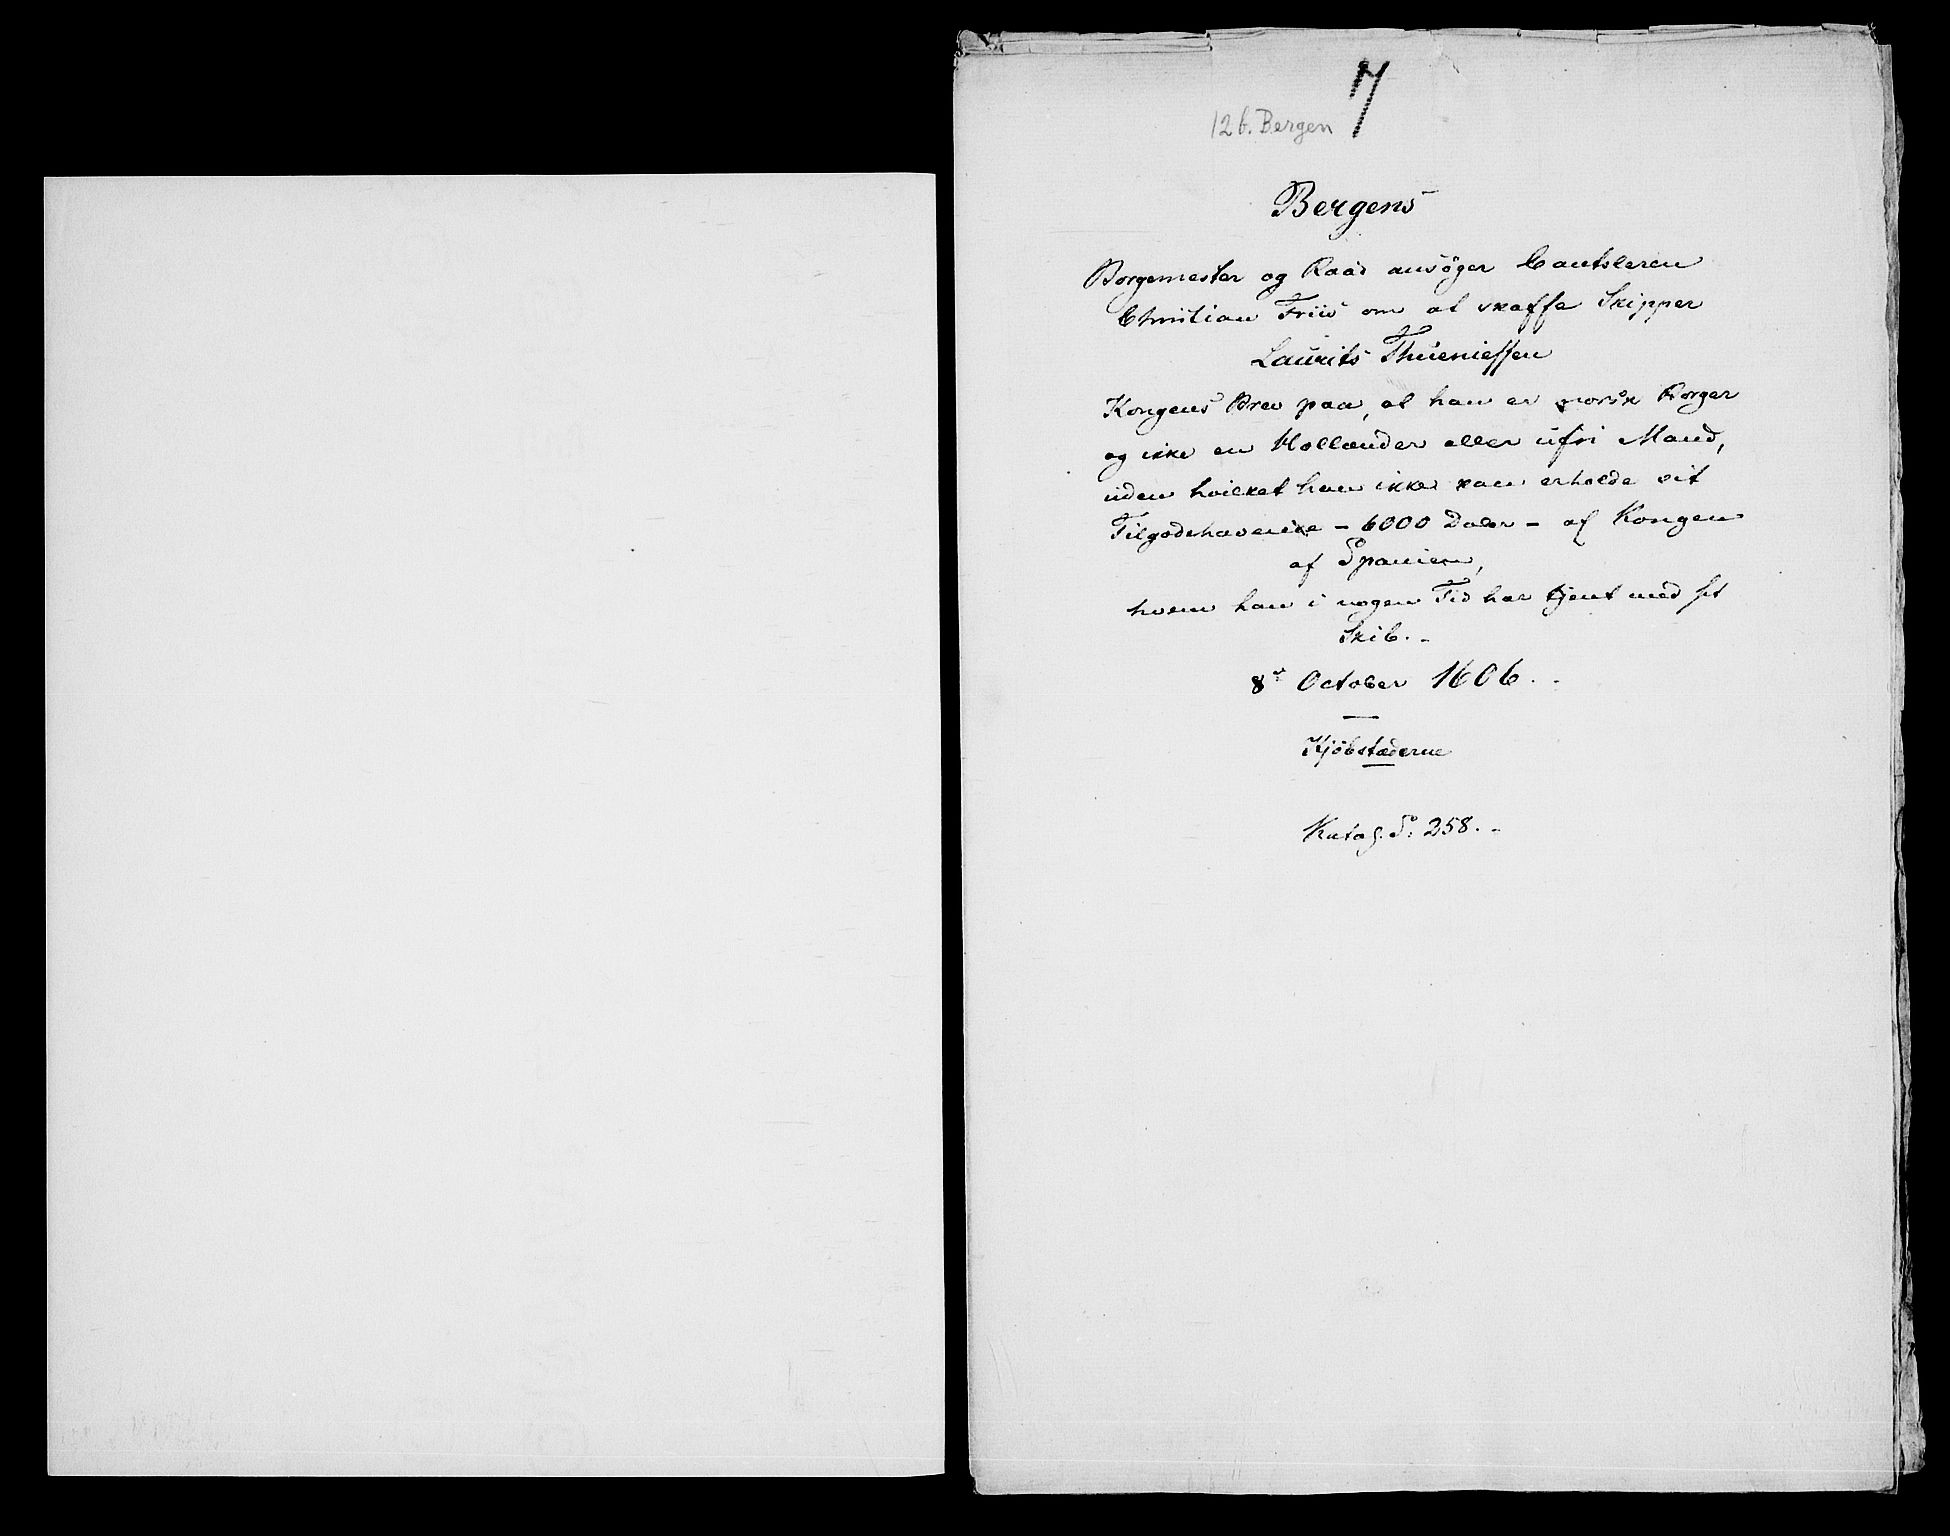 7
12 b. Bergen
Bergens
Borgemester og Raad ansøger Cantsleren
Christian Friis om at skaffe Skipper
Laurits Thueniessen
Kongens Brev paa, at han er norsk Borger
og ikke en Hollænder eller ufri Mand,
uden hvilket han ikke kan erholde sit
Tilgodehavende – 6000 Daler – af Kongen
af Spanien,
hvem han i nogen Tid har tjent med sit
Skib. –
8de October 1606. –
Kjöbstæderne
Katag. S. 258. –